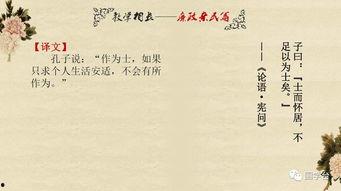 教学相长——廉政条民富
【译文】
孔子说：“作为士，如果
只求个人生活安适，不会有所
作为。”
子曰：「士而怀居，不
足以为士矣。」
——《论语·宪问》
国学会